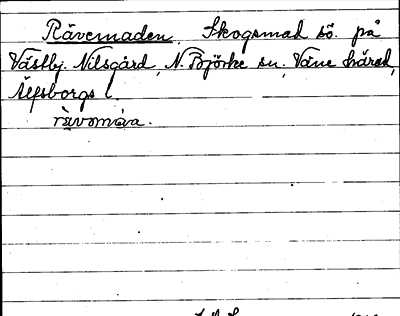 Rävemaden, Skogsmad sö. på
Västbj. Nilsgård, N. Björke sn., Väne härad,
Älfsborgs l.
rävomáɷa.